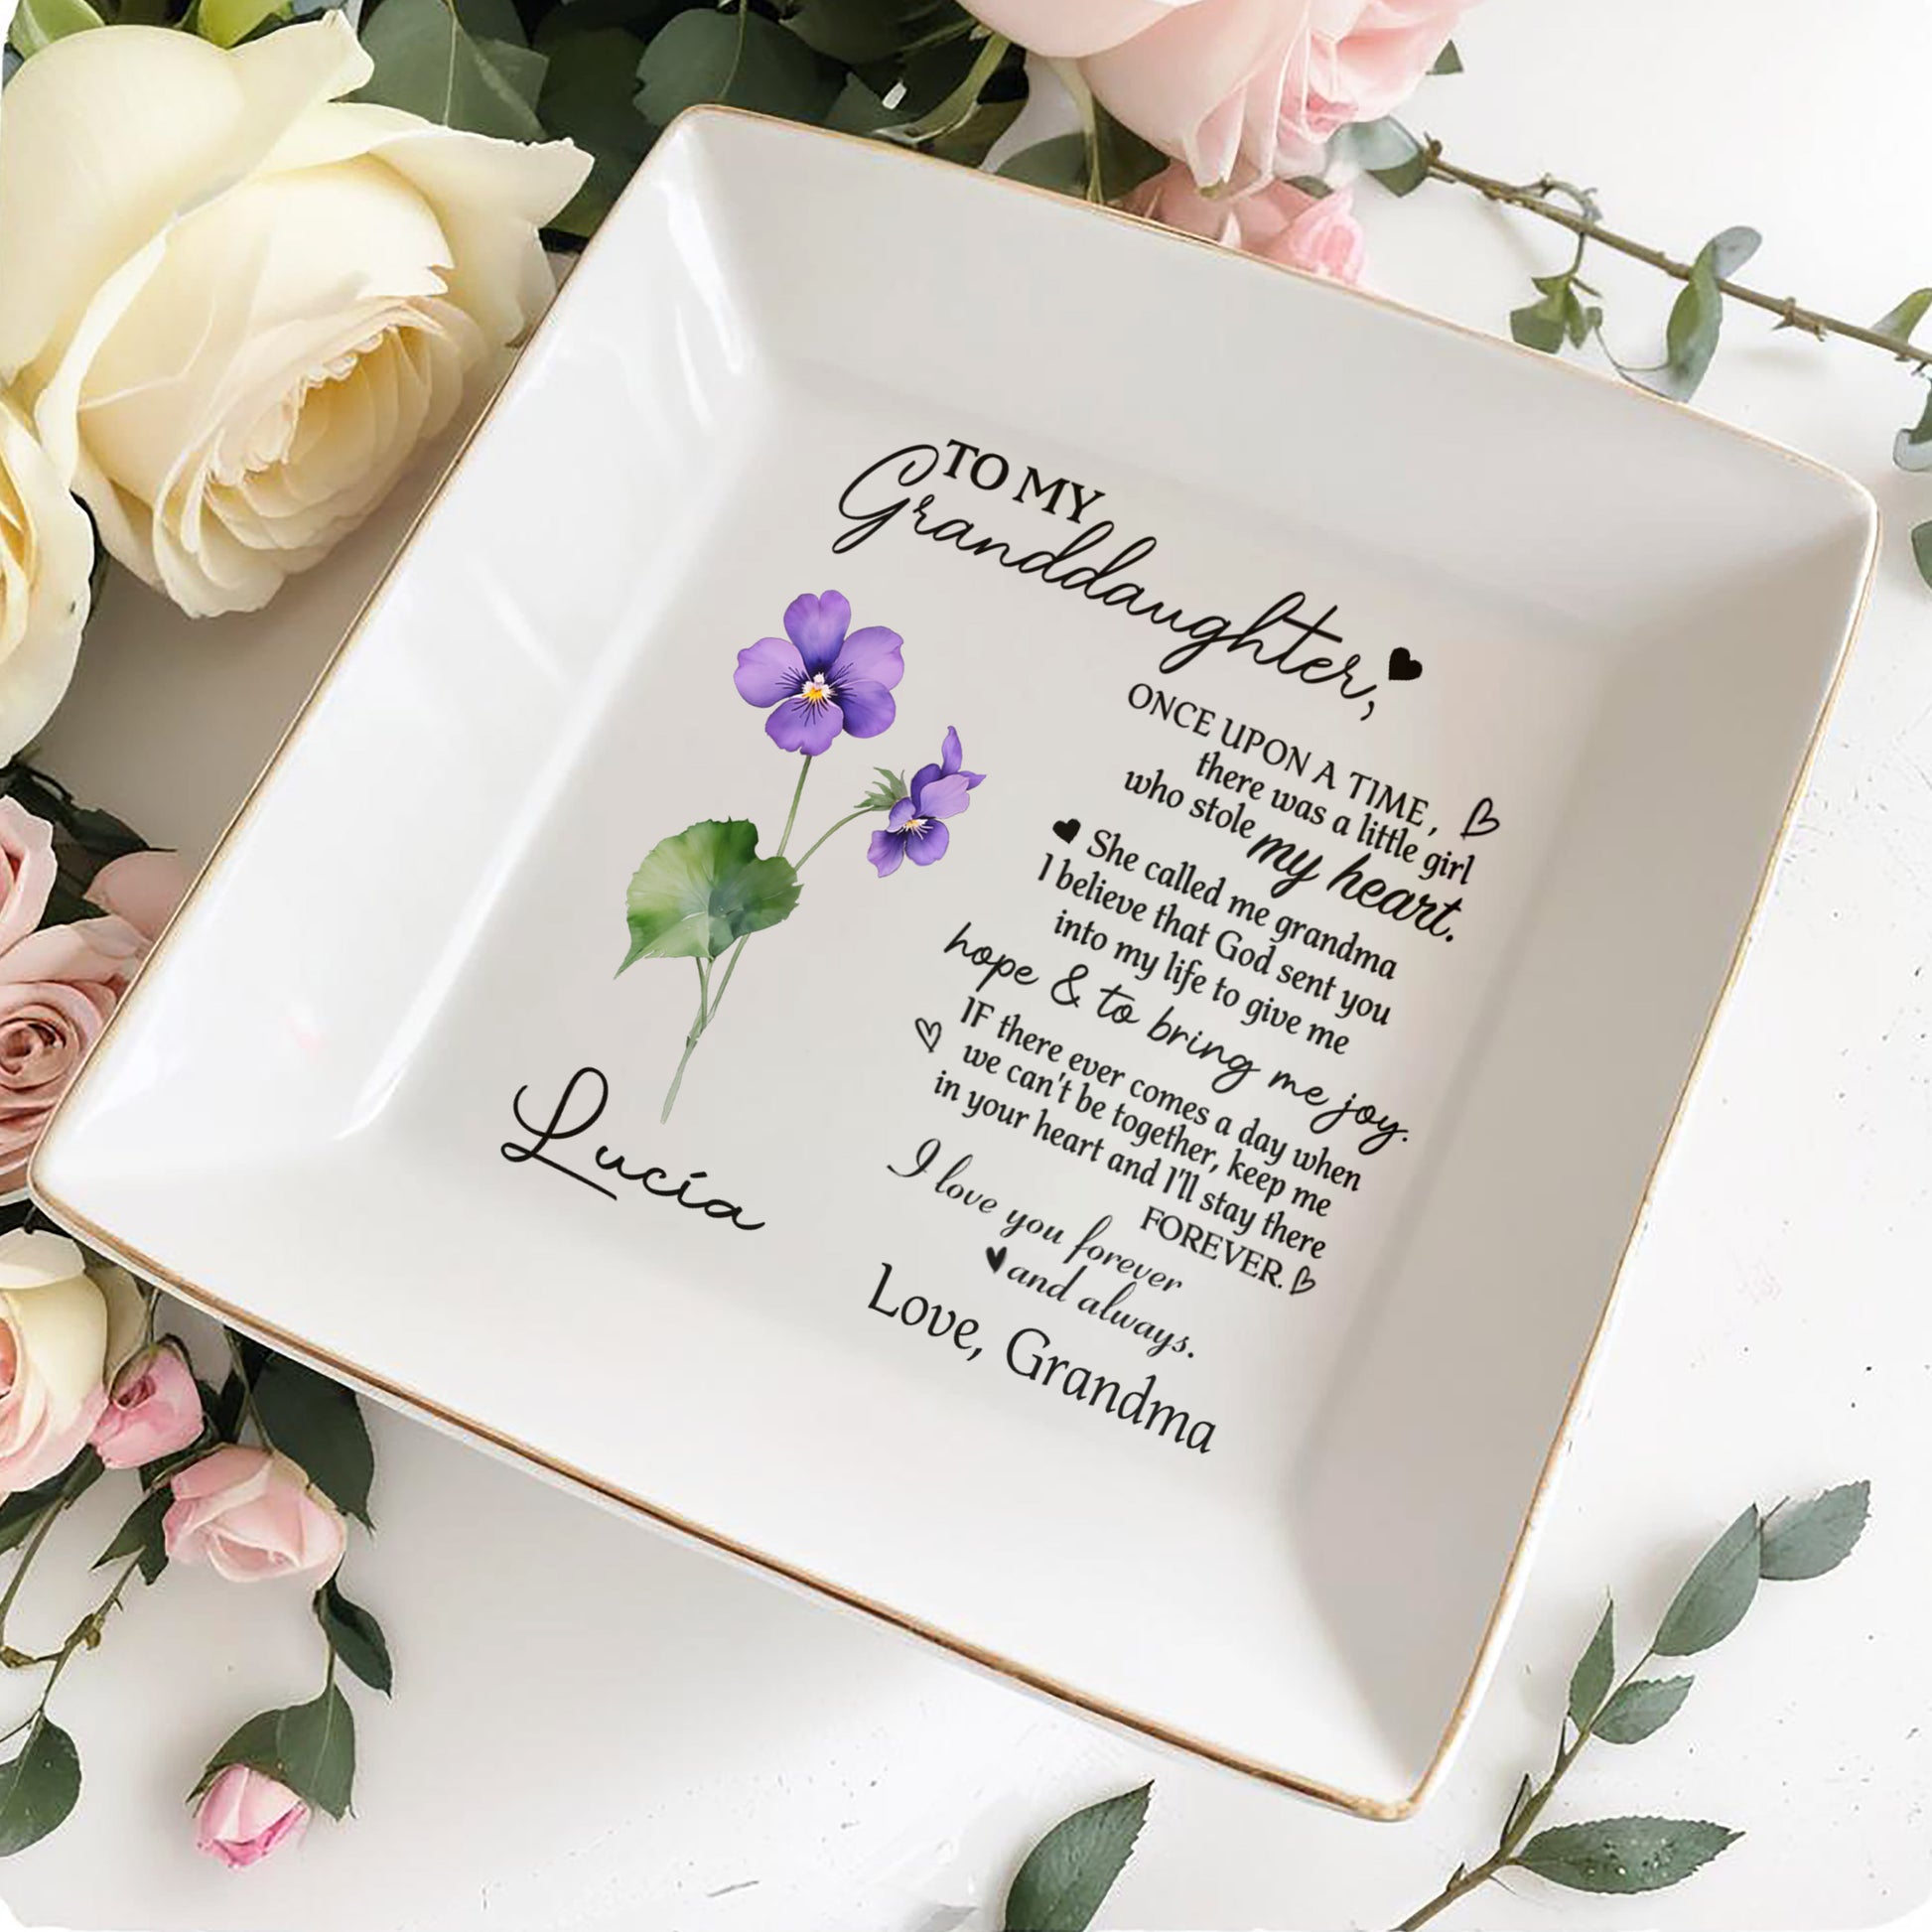 TO MY
Granddaughter,
ONCE UPON A TIME,
there was a little girl
who stole my heart.
She called me grandma
I believe that God sent you
into my life to give me
hope & to bring me joy.
IF there ever comes a day when
we can't be together, keep me
in your heart and I'll stay there
FOREVER.
I love you forever
and always.
Love, Grandma
Lucia